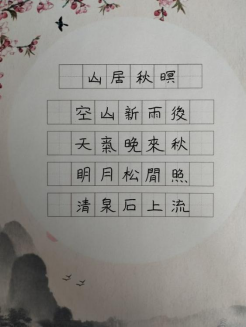 山居秋暝
空山新雨後
天氣晚來秋
明月松間照
清泉石上流